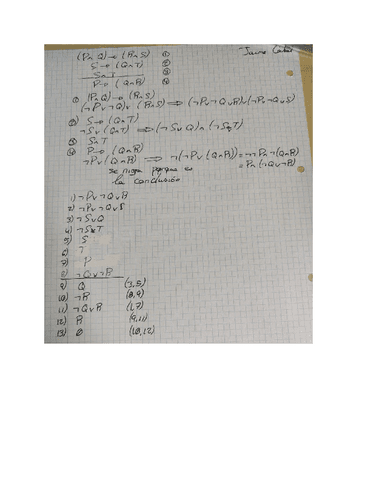 (P∧Q) → (R∧S) ①
S → (Q∧T) ②
S∧T ③
P → (Q∧R) ④
① (P∧Q) → (R∧S)
(¬P∨¬Q)∨(R∧S) ⟹ (¬P∨¬Q∨R)∧(¬P∨¬Q∨S)
② S → (Q∧T)
¬S∨(Q∧T) ⟹ (¬S∨Q)∧(¬S∨T)
③ S∧T
④ P → (Q∧R)
¬P∨(Q∧R) ⟹ ¬(¬P∨(Q∧R)) = ¬¬P∧¬(Q∧R)
= P∧(¬Q∨¬R)
se niega porque es
la conclusión
1) ¬P∨¬Q∨R
2) ¬P∨¬Q∨S
3) ¬S∨Q
4) ¬S∨T
5) S
6) T
7) P
8) ¬Q∨¬R
9) Q (3,5)
10) ¬R (8,9)
11) ¬Q∨R (1,7)
12) R (9,11)
13) ∅ (10,12)